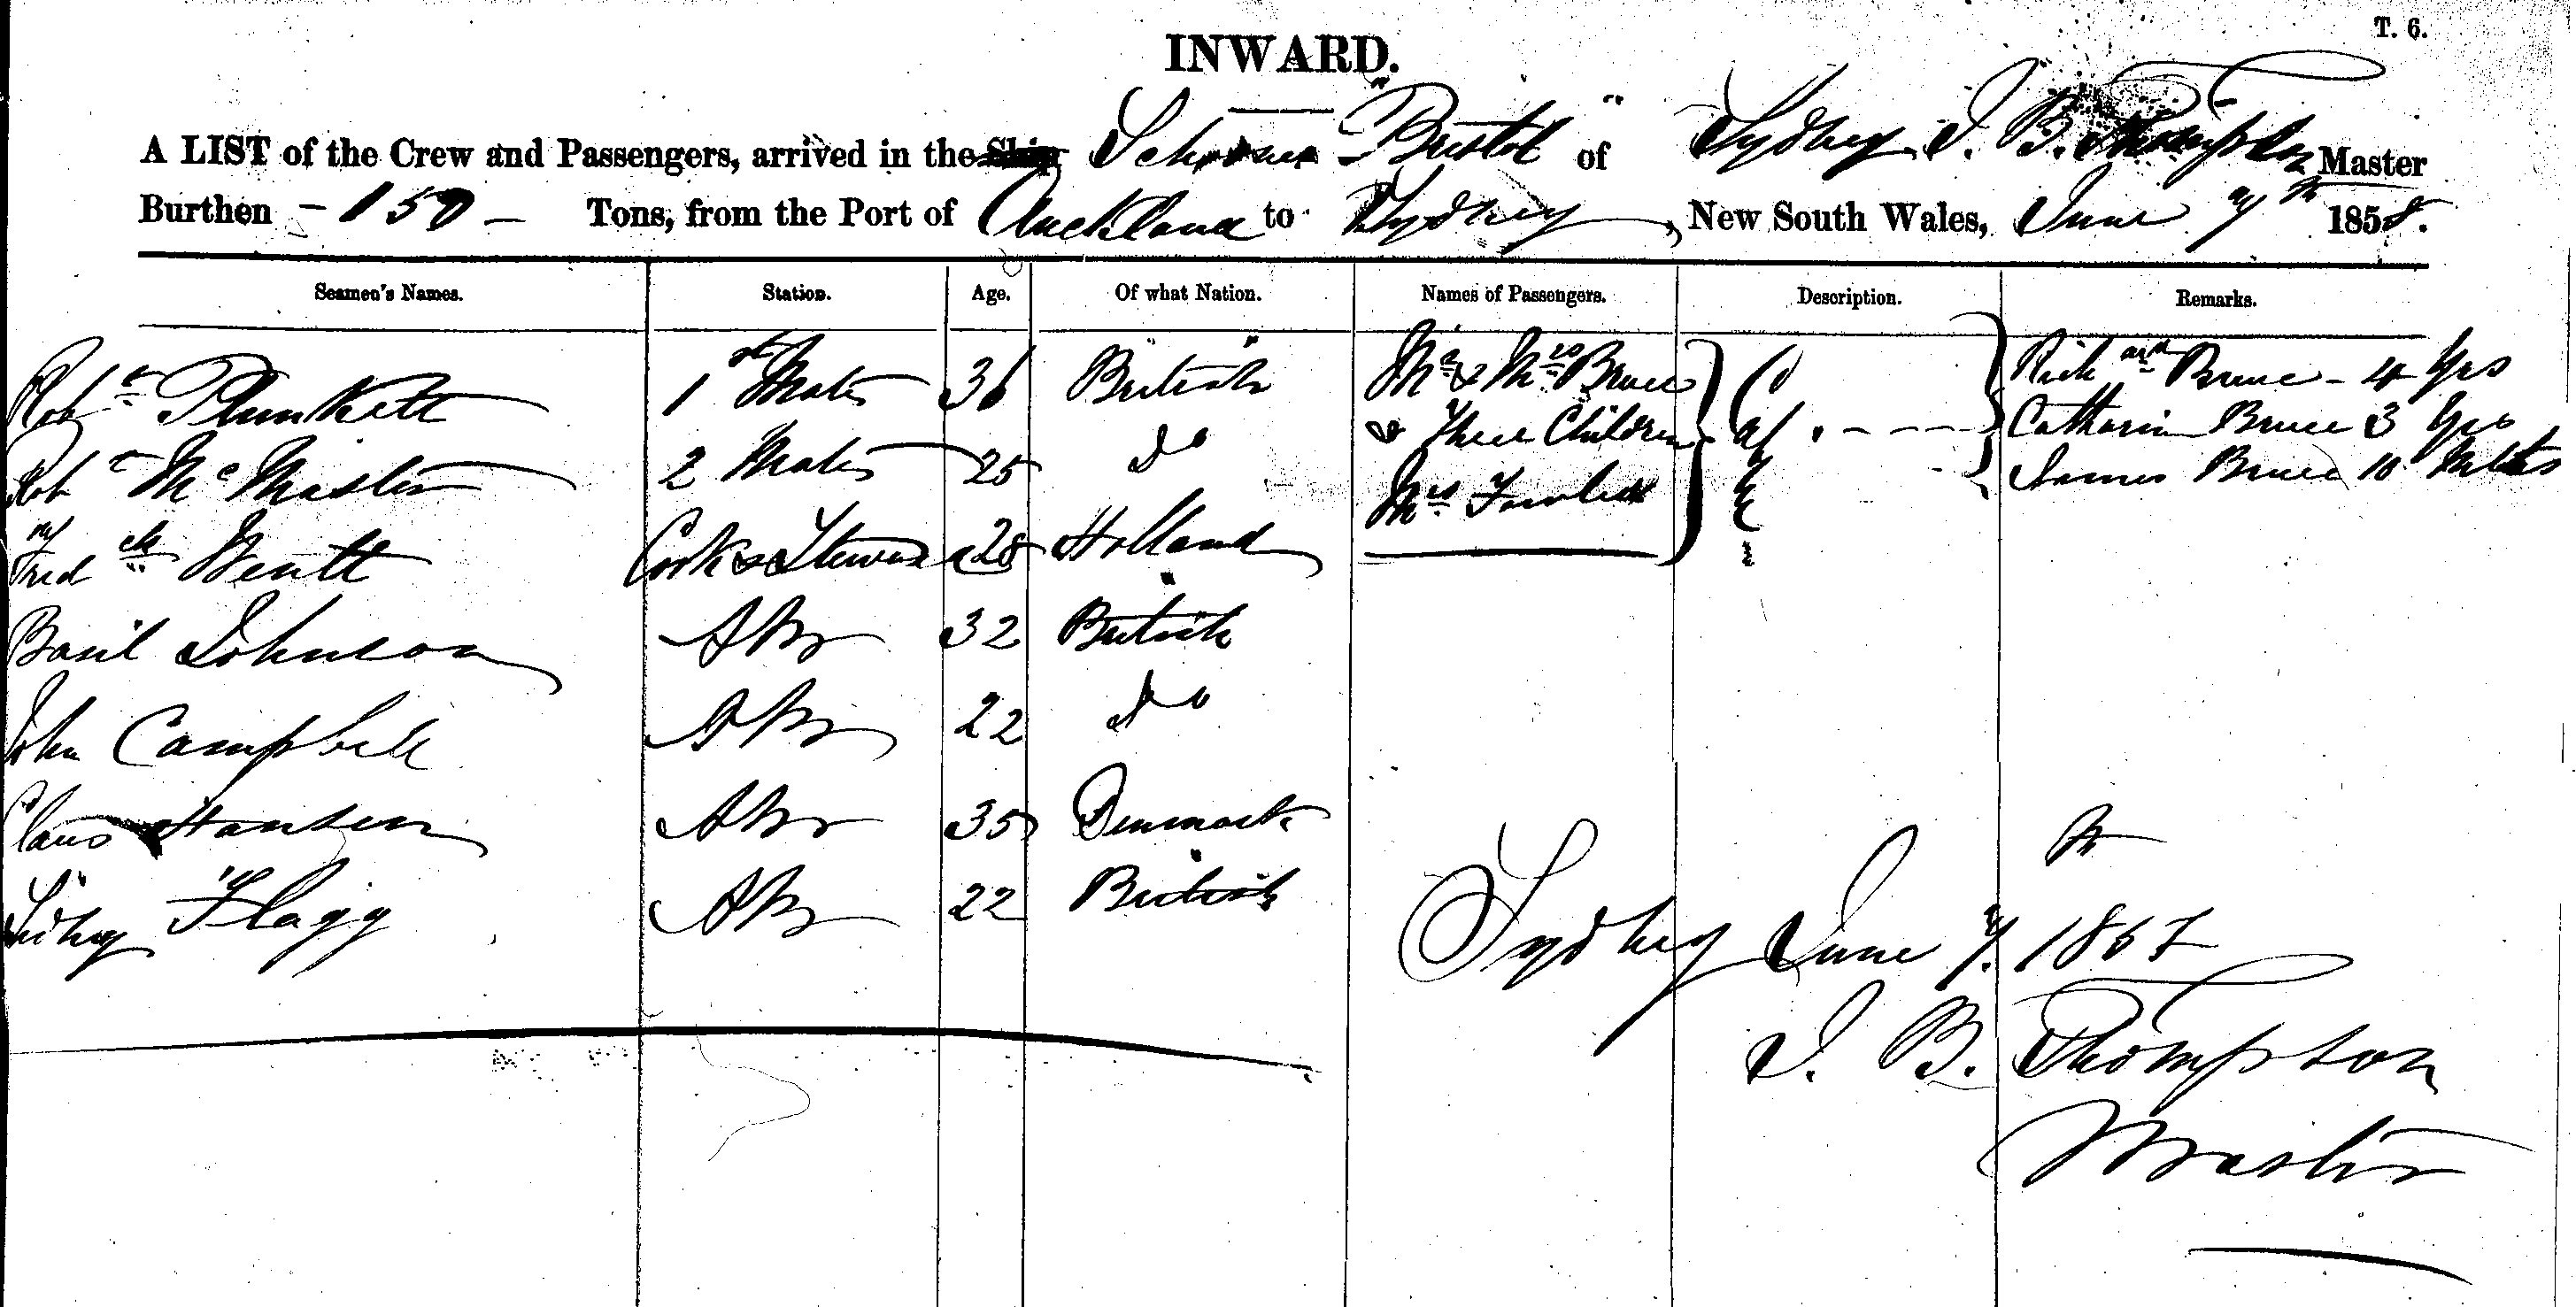 T. 6.
INWARD.
A LIST of the Crew and Passengers, arrived in the Ship Schooner "Bristol" of Sydney J. B. Thompson Master
Burthen - 150 - Tons, from the Port of Auckland to Sydney, New South Wales, June 7th 1858.
Seamen's Names. Station. Age. Of what Nation. Names of Passengers. Description. Remarks.
Robt Plunkett 1st Mate 36 British Mr & Mrs Bruce Richard Bruce - 4 Yrs
Robt McMaster 2 Mate 25 Do & Three Children Catharin Bruce 3 Yrs
Mrs James Bruce 10 Mths
Fredck Cook & Steward 28 Holland
Basil Johnson AB 32 British
John Campbell AB 22 Do
Claus Hansen AB 35 Denmark
Sidney Flagg AB 22 British
Sydney June 7. 
J. B. Thompson
Master